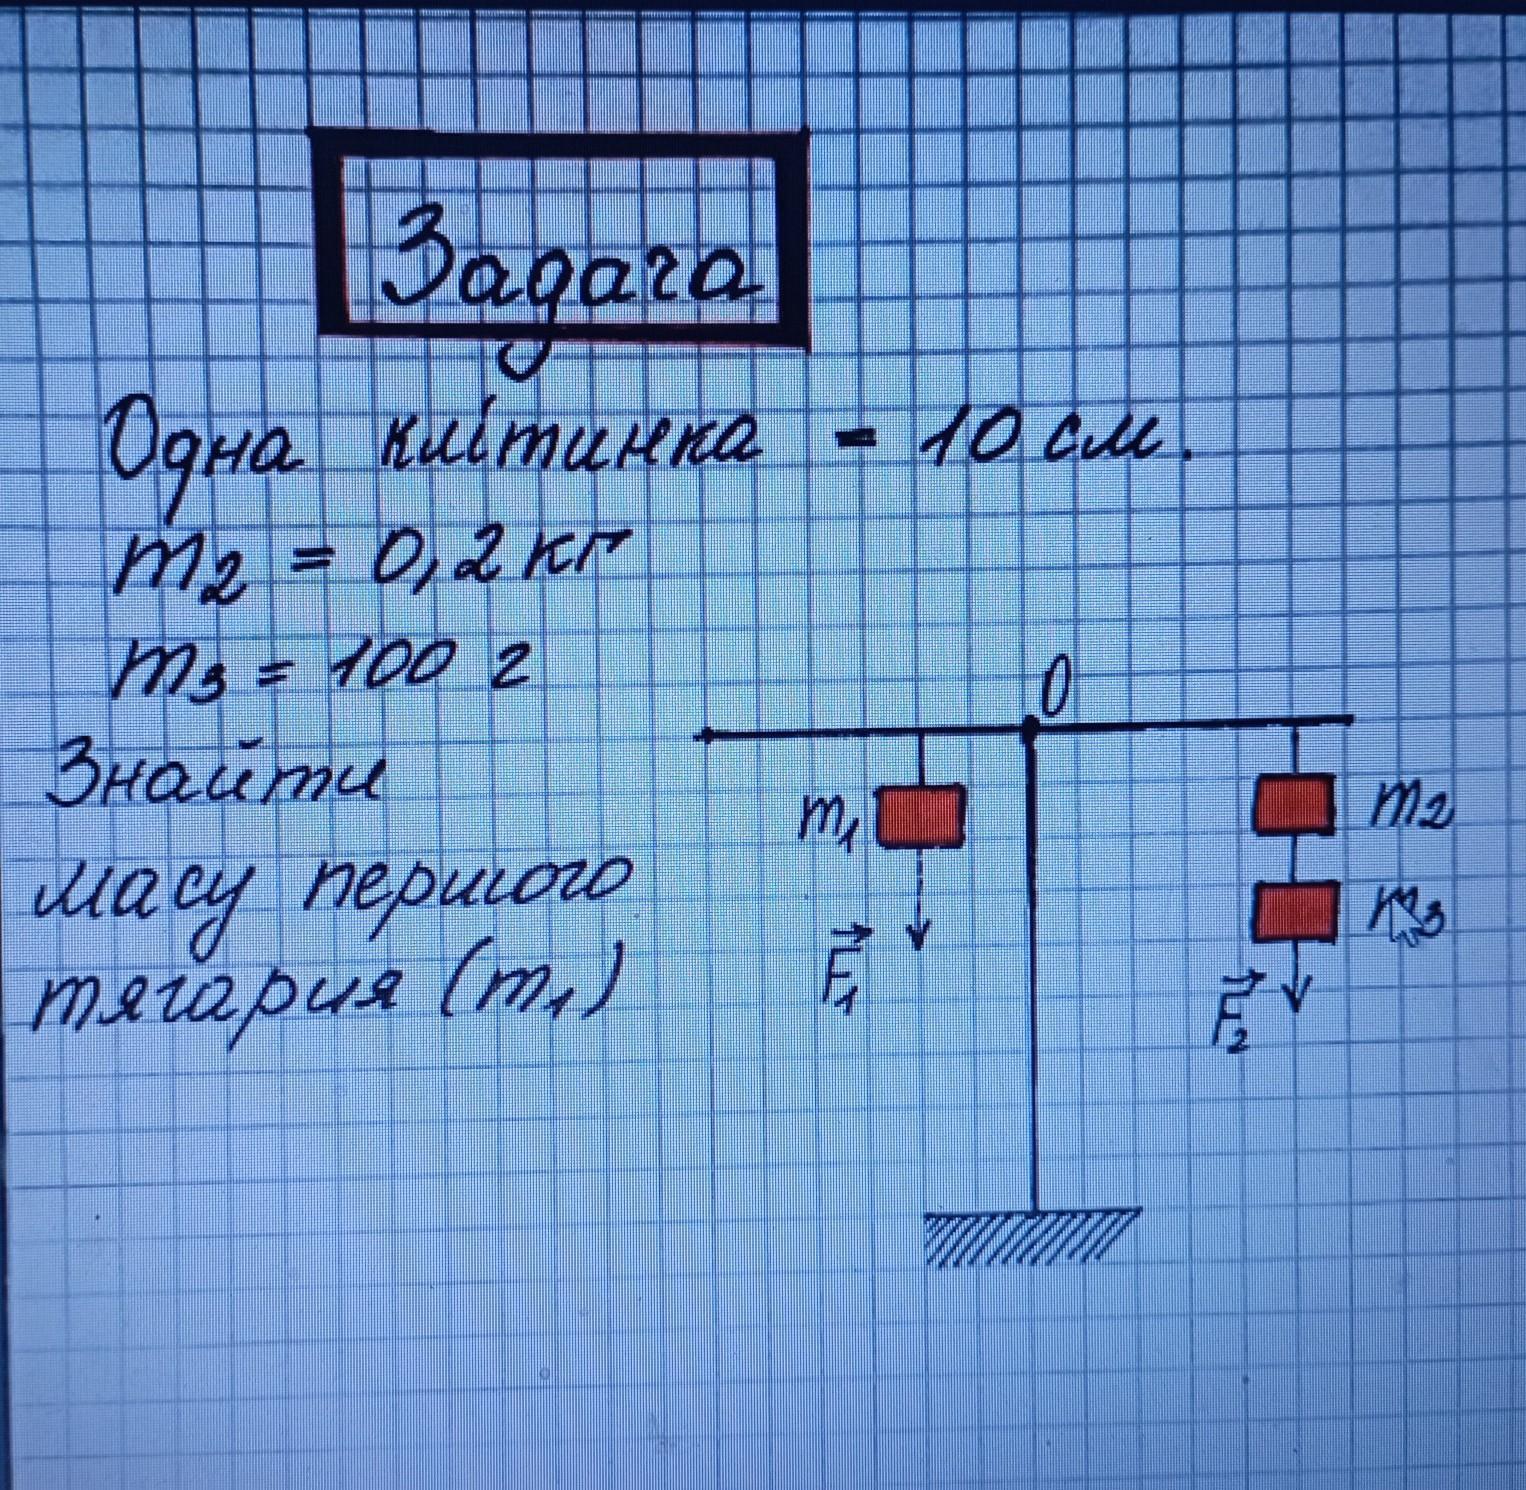 Задача
Одна клітинка = 10 см.
m₂ = 0,2 кг
m₃ = 100 г
Знайти
масу першого
тягарця (m₁)
O
m₁
m₂
m₃
F₁
F₂